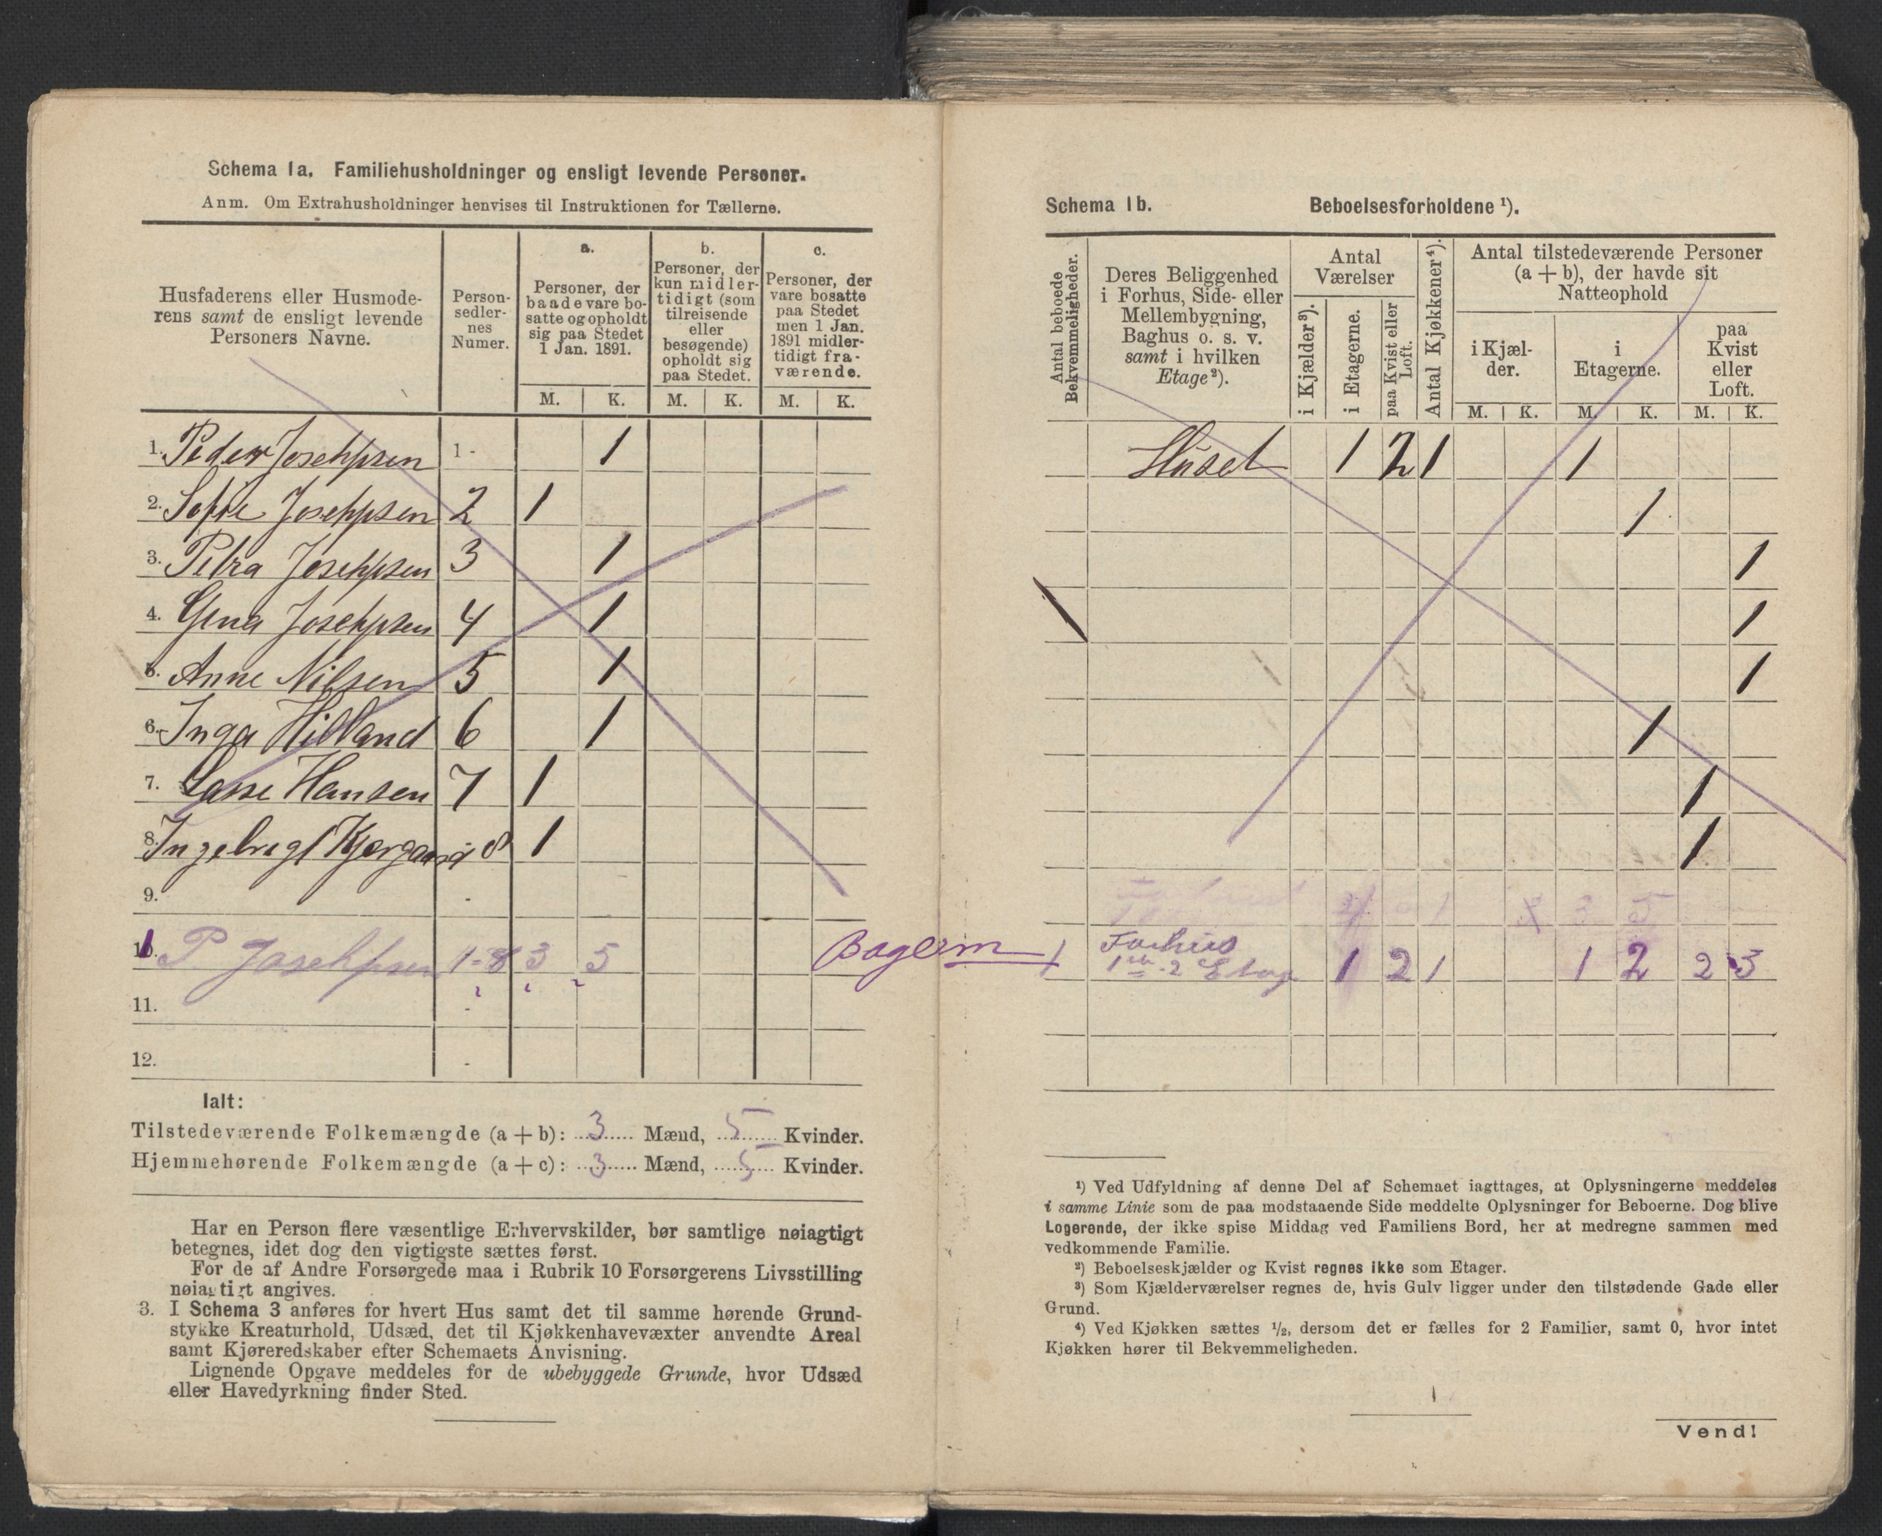 Schema 1a. Familiehusholdninger og ensligt levende Personer.
Anm. Om Extrahusholdninger henvises til Instruktionen for Tællerne.
Husfaderens eller Husmode-
rens samt de ensligt levende
Personers Navne.
Person-
sedler-
nes
Numer.
a.
Personer, der
baade vare bo-
satte og opholdt
sig paa Stedet
1 Jan. 1891.
b.
Personer, der
kun midler-
tidigt (som
tilreisende
eller
besøgende)
opholdt sig
paa Stedet.
c.
Personer, der
vare bosatte
paa Stedet
men 1 Jan.
1891 midler-
tidigt fra-
værende.
M. K. M. K. M. K.
1. Peder Josephsen 1 - 1
2. Sofie Josephsen 2 1
3. Petra Josephsen 3 1
4. Gina Josephsen 4 1
5. Anne Nilsen 5 1
6. Inga Hilland 6 1
7. Lasse Hansen 7 1
8. Ingebrigt Kjergaard 8 1
9. -
10. 1 P Josephsen 1-8 3 5 Bagerm
11. -
12. -
Ialt:
Tilstedeværende Folkemængde (a + b): 3 Mænd, 5 Kvinder.
Hjemmehørende Folkemængde (a + c): 3 Mænd, 5 Kvinder.
Har en Person flere væsentlige Erhvervskilder, bør samtlige nøiagtigt
betegnes, idet dog den vigtigste sættes først.
For de af Andre Forsørgede maa i Rubrik 10 Forsørgerens Livsstilling
nøiagtigt angives.
3. I Schema 3 anføres for hvert Hus samt det til samme hørende Grund-
stykke Kreaturhold, Udsæd, det til Kjøkkenhavevæxter anvendte Areal
samt Kjøreredskaber efter Schemaets Anvisning.
Lignende Opgave meddeles for de ubebyggede Grunde, hvor Udsæd
eller Havedyrkning finder Sted.
Schema 1b. Beboelsesforholdene ¹).
Antal beboede
Bekvemmeligheder.
Deres Beliggenhed
i Forhus, Side- eller
Mellembygning,
Baghus o. s. v.
samt i hvilken
Etage²).
Antal
Værelser
i Kjælder³).
i Etagerne.
paa Kvist eller
Loft.
Antal Kjøkkener⁴).
Antal tilstedeværende Personer
(a + b), der havde sit
Natteophold
i Kjæl-
der.
i
Etagerne.
paa
Kvist
eller
Loft.
M. K. M. K. M. K.
Huset 1 2 1 1
1
1
1 1
1
1
1
1
1 3 5
1 Forhus
1ste 2 Etage 1 2 1 1 2 2 3
¹) Ved Udfyldning af denne Del af Schemaet iagttages, at Oplysningerne meddeles
i samme Linie som de paa modstaaende Side meddelte Oplysninger for Beboerne. Dog blive
Logerende, der ikke spise Middag ved Familiens Bord, her at medregne sammen med
vedkommende Familie.
²) Beboelseskjælder og Kvist regnes ikke som Etager.
³) Som Kjælderværelser regnes de, hvis Gulv ligger under den tilstødende Gade eller
Grund.
⁴) Ved Kjøkken sættes ½, dersom det er fælles for 2 Familier, samt 0, hvor intet
Kjøkken hører til Bekvemmeligheden.
Vend!